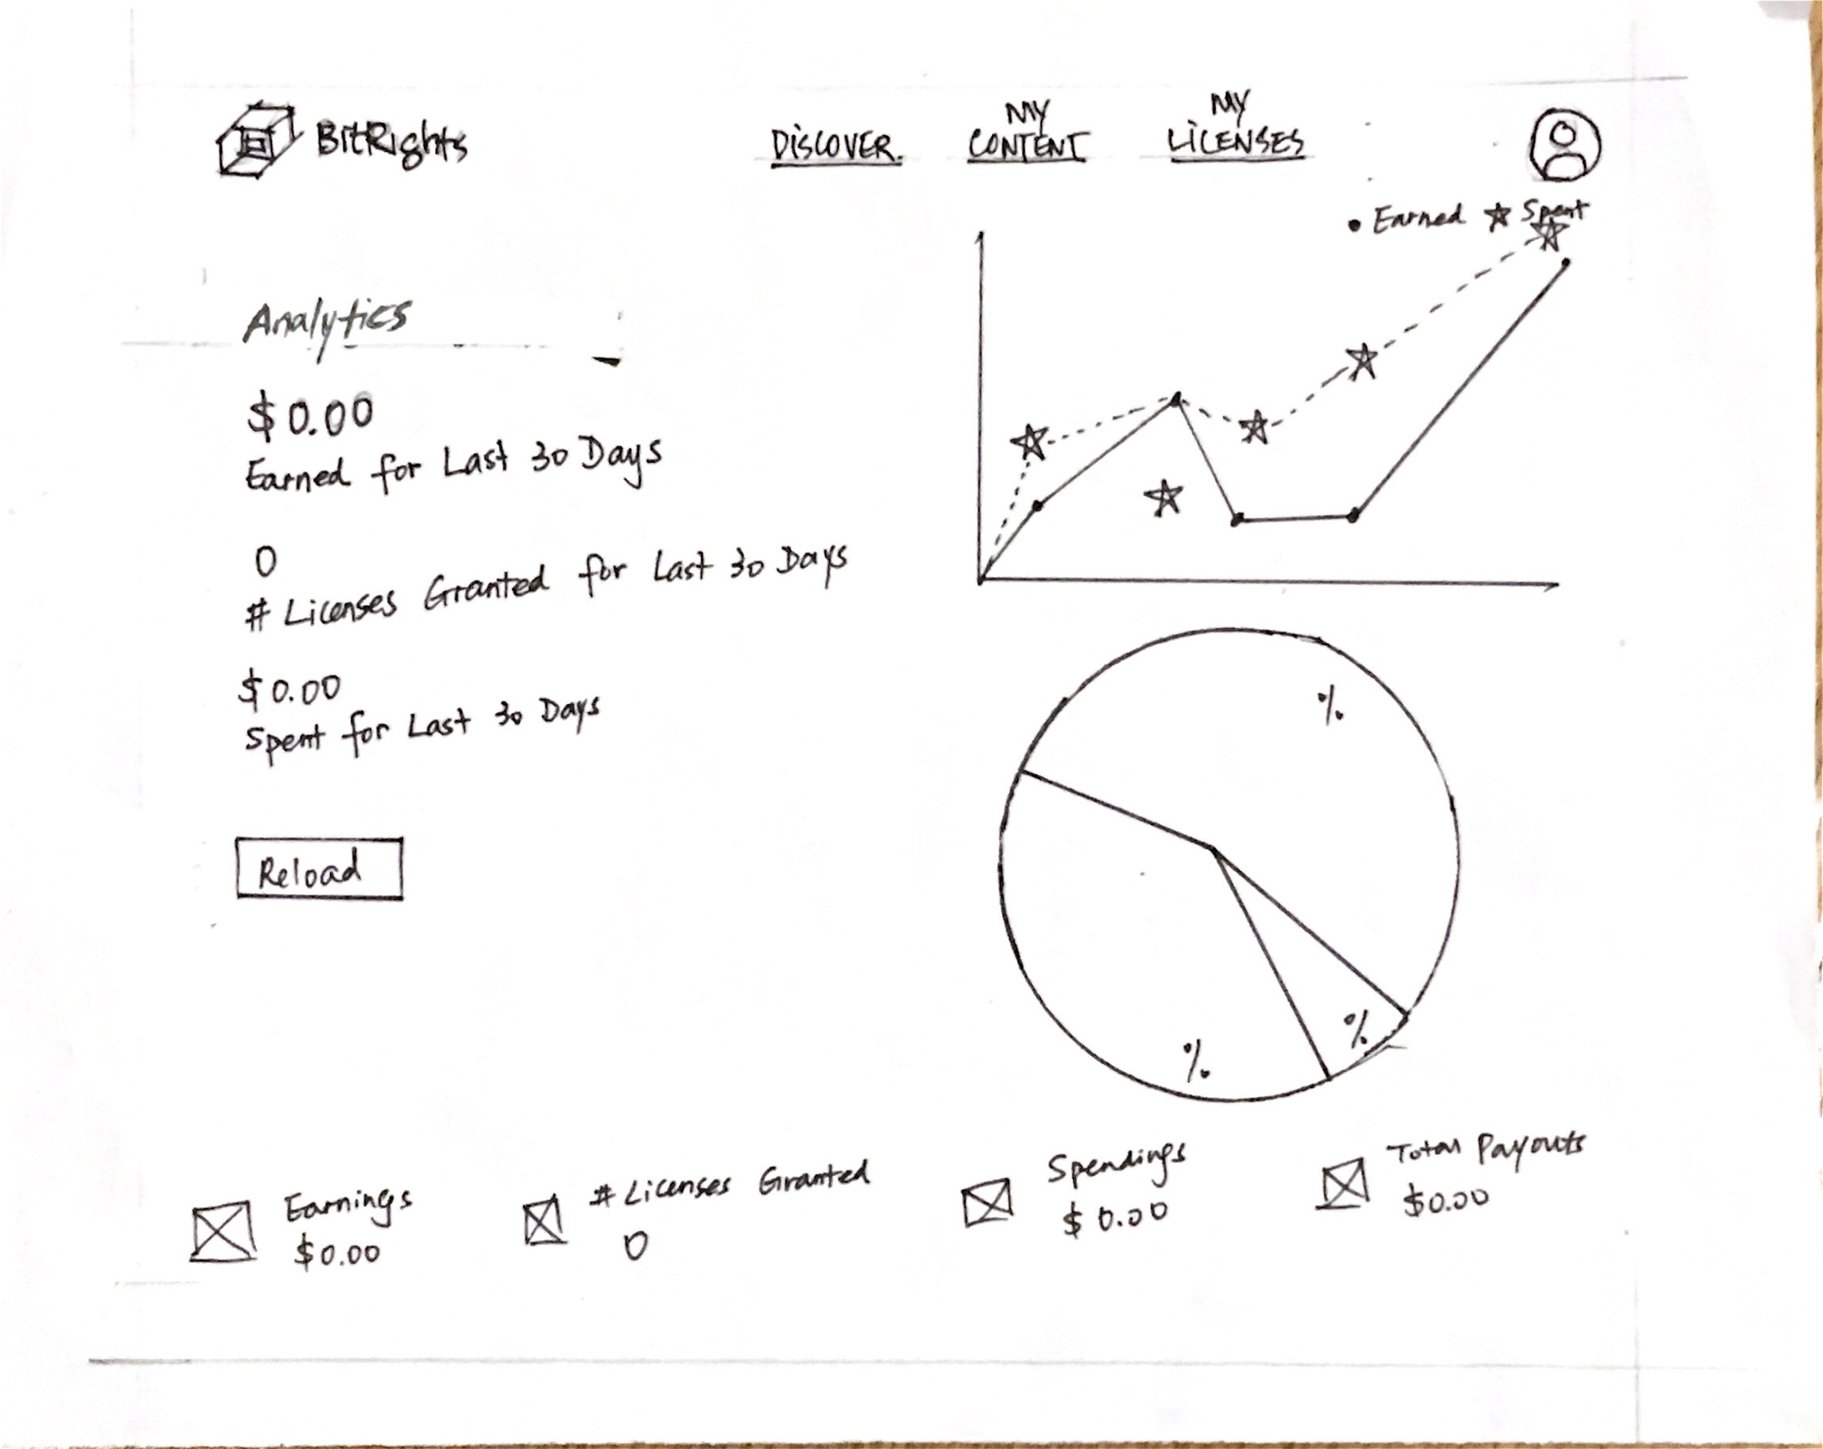 BitRights
DISCOVER.
MY
CONTENT
MY
LICENSES
Earned
Spent
Analytics
$0.00
Earned for Last 30 Days
0
# Licenses Granted for Last 30 Days
$0.00
Spent for Last 30 Days
Reload
%
%
%
Earnings
$0.00
# Licenses Granted
0
Spendings
$0.00
Total Payouts
$0.00